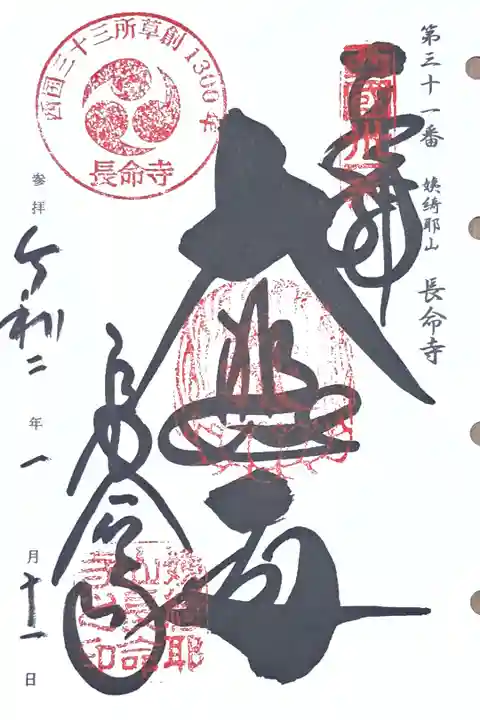 第三十一番 姨綺耶山 長命寺
奉拝
大悲閣
長命寺
参拝 令和二年一月十一日
西国三十三所草創1300年
長命寺